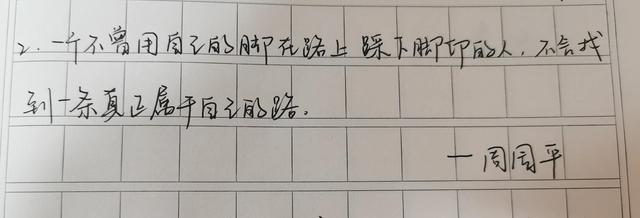 2.一个不曾用自己的脚在路上踩下脚印的人,不会找
到一条真正属于自己的路。
一周国平